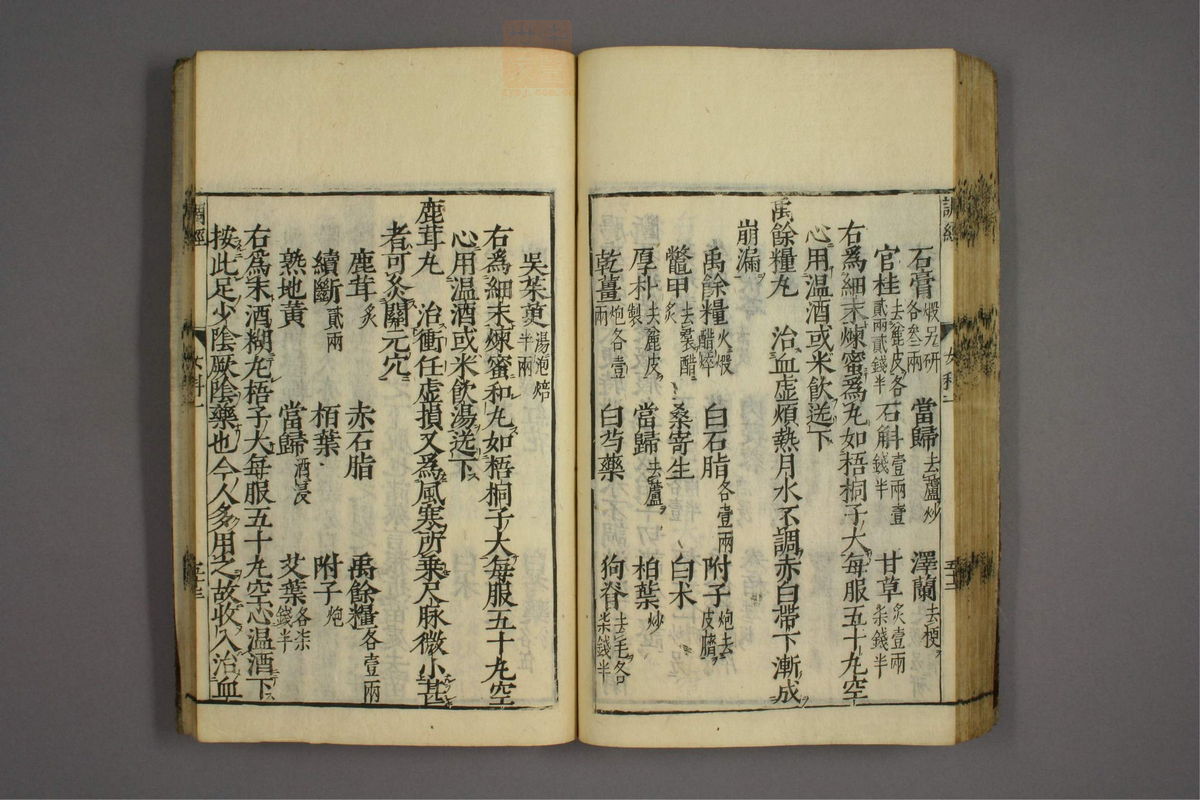 石膏煅另研各叁兩 當歸去蘆炒 澤蘭去梗
官桂去麄皮各貳兩貳錢半 石斛壹兩壹錢半 甘草炙壹兩柒錢半
右爲細末煉蜜爲丸如梧桐子大每服五十丸空
心用温酒或米飲送下
禹餘糧丸 治血虚煩熱月水不調赤白帶下漸成
崩漏
禹餘糧火煅醋焠 白石脂各壹兩 附子炮去皮臍
鱉甲去裙醋炙 桑寄生 白术
厚朴去麄皮製 當歸去蘆 柏葉炒
乾薑炮各壹兩 白芍藥 狗脊去毛各柒錢半
吳茱萸湯泡焙半兩
右爲細末煉蜜和丸如梧桐子大每服五十丸空
心用温酒或米飲湯送下
鹿茸丸 治衝任虚損又爲風寒所乗尺脉微小甚
者可灸關元穴
鹿茸炙 赤石脂 禹餘糧各壹兩
續斷貳兩 栢葉 附子炮
熟地黄 當歸酒浸 艾葉各柒錢半
右爲末酒糊丸梧子大每服五十丸空心温酒下
按此足少陰厥陰藥也今人多用之故收入治血
調經
女科一
五十三